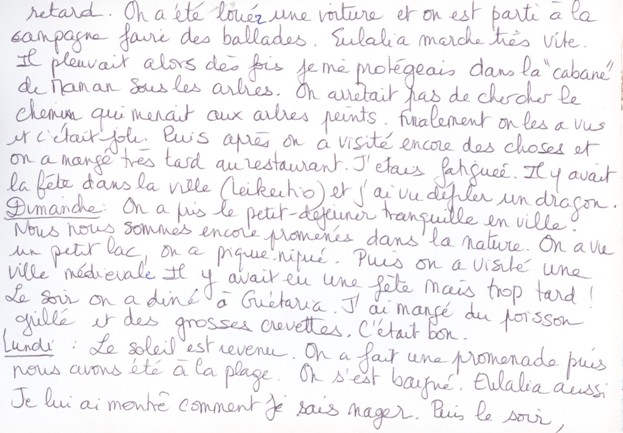 retard. On a été louer une voiture et on est parti à la
campagne faire des ballades. Eulalia marche très vite.
Il pleuvait alors dès fois je me protégeais dans la "cabane"
de Maman sous les arbres. On arrêtait pas de chercher le
chemin qui menait aux arbres peints. Finalement on les a vus
et c'était joli. Puis après on a visité encore des choses et
on a mangé très tard au restaurant. J'étais fatiguée. Il y avait
la fête dans la ville (Leikeitio) et j'ai vu défiler un dragon.
Dimanche: On a pris le petit-déjeuner tranquille en ville.
Nous nous sommes encore promenés dans la nature. On a vu
un petit lac, on a pique-niqué. Puis on a visité une
ville médievale Il y avait eu une fête mais trop tard !
Le soir on a diné à Guétaria. J'ai mangé du poisson
grillé et des grosses crevettes. C'était bon.
Lundi : Le soleil est revenu. On a fait une promenade puis
nous avons été à la plage. On s'est baigné. Eulalia aussi
Je lui ai montré comment je sais nager. Puis le soir,